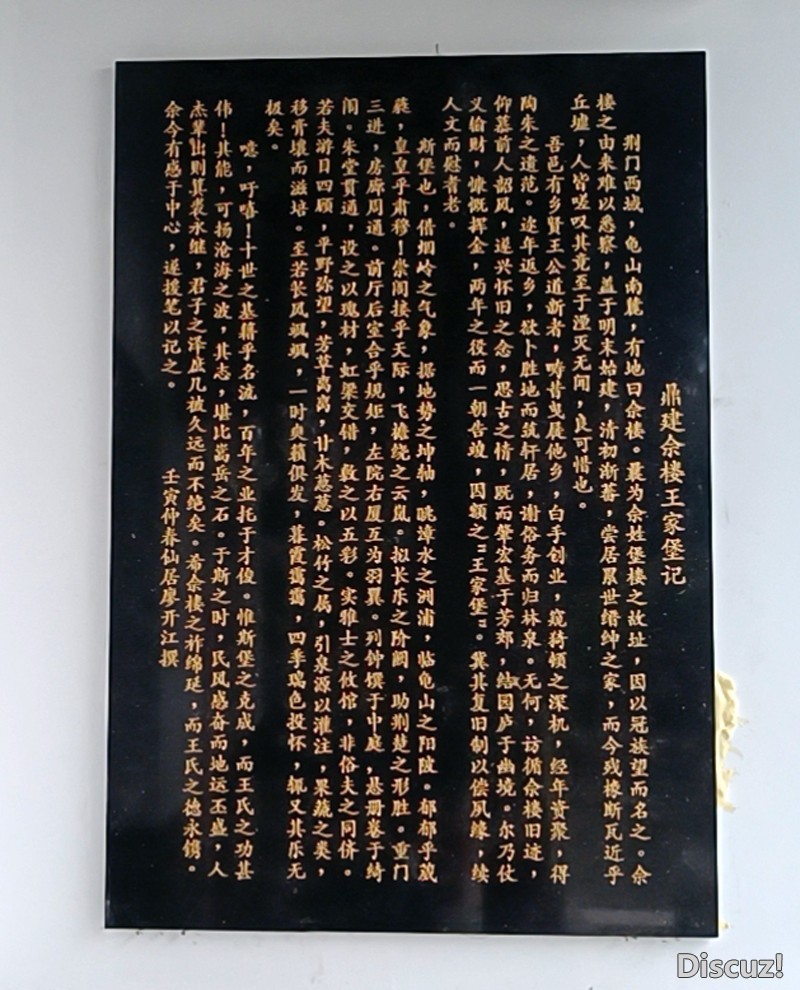 鼎建佘楼王家堡记
荆门西域，龟山南麓，有地曰佘楼。曩为佘姓堡楼之故址，因以冠族望而名之。佘
楼之由来难以悉察，盖于明末始建，清初渐蕃，尝居累世缙绅之家，而今残椽断瓦近乎
丘墟，人皆嗟叹其竟至于湮灭无闻，良可惜也。
吾邑有乡贤王公道新者，畴昔曳展他乡，白手创业，窥猗顿之深机，经年资聚，得
陶朱之遗范。迩年返乡，欲卜胜地而筑轩居，谢俗务而归林泉。无何，访循佘楼旧迹，
仰慕前人韶风，遂兴怀旧之念，思古之情，既而肇宏基于芳郊，结园庐于幽境。尔乃仗
义输财，慷慨挥金，两年之役而一朝告竣，因额之“王家堡”。冀其复旧制以偿夙缘，续
人文而慰耆老。
斯堡也，借烟岭之气象，据地势之坤轴，眺漳水之洲浦，临龟山之阳陂。郁郁乎葳
蕤，皇皇乎肃穆！崇阁接乎天际，飞檐绕之云岚。拟长乐之阶阙，助荆楚之形胜。重门
三进，房廊周通。前厅后室合乎规矩，左院右厦互为羽翼。列钟馔于中庭，悬册卷于绮
阁。朱堂贯通，设之以瑰材，虹梁交错，敷之以五彩。实雅士之攸馆，非俗夫之同侪。
若夫游目四顾，平野弥望，芳草离离，甘木葱葱。松竹之属，引泉源以灌注，果蔬之类，
移膏壤而滋培。至若长风飒飒，一时爽籁俱发，暮霞霭霭，四季瑞色投怀，辄又其乐无
极矣。
噫，吁嘻！十世之基藉乎名流，百年之业托于才俊。惟斯堡之克成，而王氏之功甚
伟！其能，可扬沧海之波，其志，堪比嵩岳之石。于斯之时，民风感奋而地运丕盛，人
杰辈出则箕裘永继，君子之泽庶几被久远而不绝矣。希佘楼之祚绵延，而王氏之德永镌。
余今有感于中心，遂援笔以记之。
壬寅仲春仙居廖开江撰
Discuz!